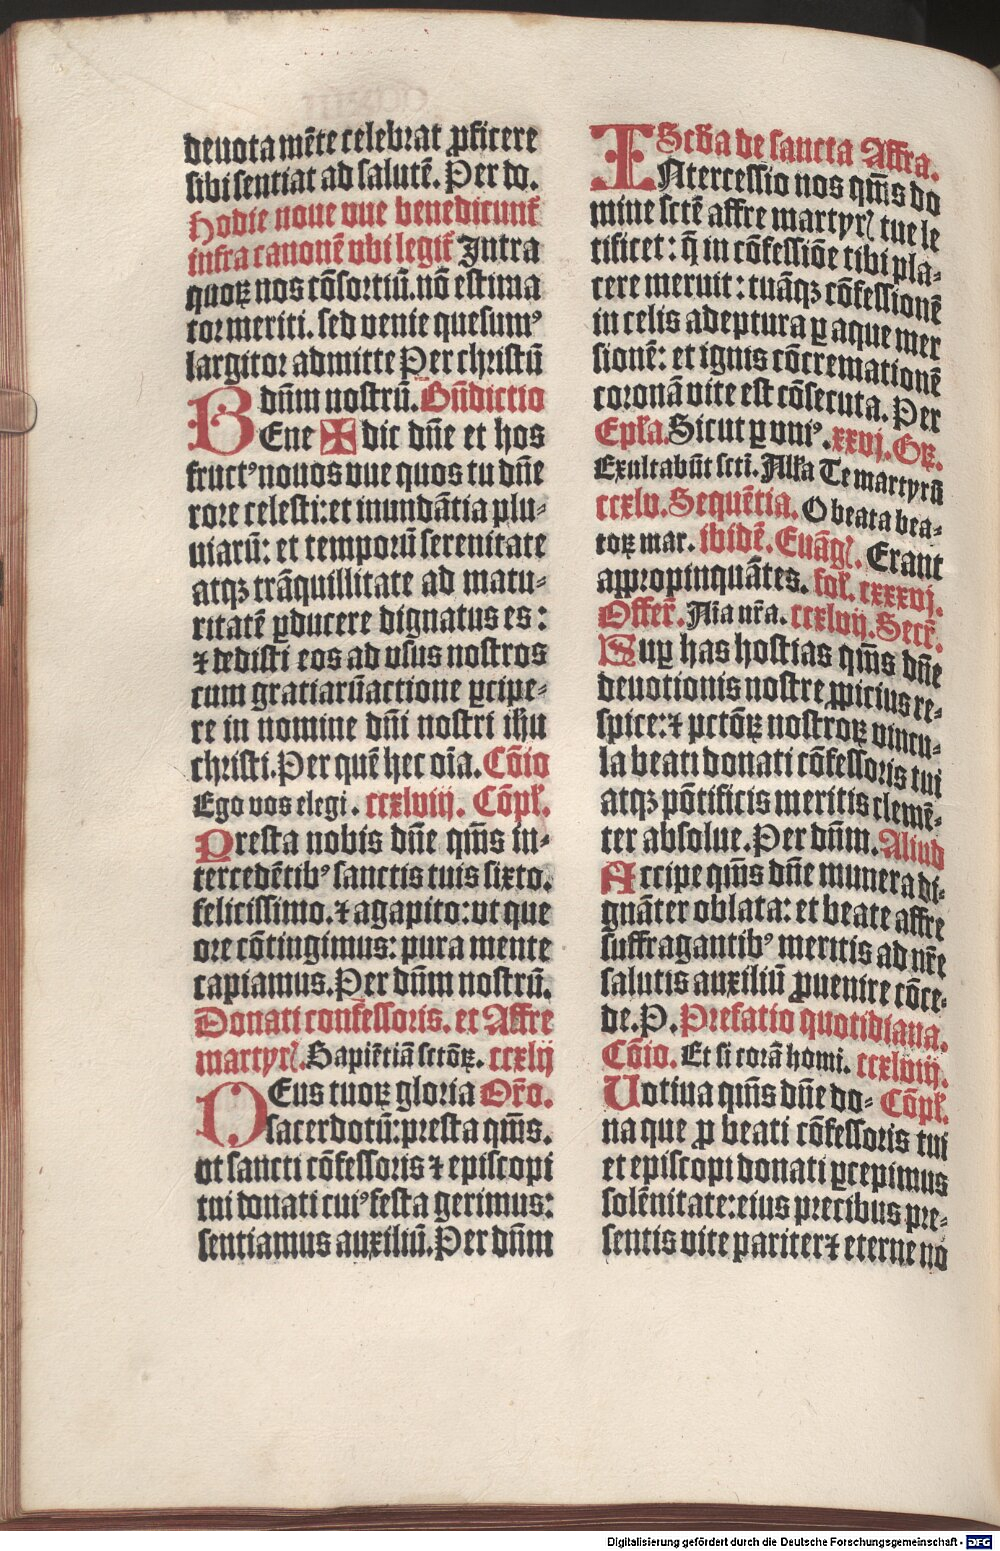 deuota mēte celebrat ꝓficere
sibi sentiat ad salutē. Per do.
Hodie noue vue benedicunt᷑
infra canonē vbi legit᷑ Intra
quoꝝ nos cōsortiū. nō estima
tor meriti. sed venie quesumꝰ
largitor admitte Per christū
dn̄m nostrū. Bn̄dictio
BEne ✠ dic dn̄e et hos
fructꝰ nouos vue quos tu dn̄e
rore celesti: et inundātia plu-
uiarū: et temporū serenitate
atqꝫ trāquillitate ad matu-
ritatē ꝑducere dignatus es:
⁊ dedisti eos ad vsus nostros
cum gratiarūactione ꝑcipe-
re in nomine dn̄i nostri ih̄u
christi. Per quē hec oīa. Cōio
Ego vos elegi. ccxlviij. Cōpl̄.
Presta nobis dn̄e qm̄s in-
tercedētibꝰ sanctis tuis sixto.
felicissimo. ⁊ agapito: vt que
ore cōtingimus: pura mente
capiamus. Per dn̄m nostrū.
Donati confessoris. et Affre
martyrꝭ. Sapiētiā sctōꝝ. ccxlij
DEus tuoꝝ gloria Or̄o.
sacerdotū: presta qm̄s.
vt sancti cōfessoris ⁊ episcopi
tui donati cuiꝰ festa gerimus:
sentiamus auxiliū. Per dn̄m
Scd̄a de sancta Affra.
INtercessio nos qm̄s do
mine sctē affre martyrꝭ tue le
tificet: q̄ in cōfessiōe tibi pla-
cere meruit: tuāqꝫ cōfessionē
in celis adeptura ꝑ aque mer
sionē: et ignis cōcremationē
coronā vite est cōsecuta. Per
Epl̄a. Sicut ꝑ vniꝰ. xxvj. Gꝝ.
Exultabūt scti. Al̄la Te martyrū
ccxlv. Sequētia. O beata bea-
toꝝ mar. ibidē. Euāgꝭ. Erant
appropinquātes. fol̄. cxxxvj.
Offer̄. Aīa nr̄a. ccxlvij. Secr̄.
Suꝑ has hostias qm̄s dn̄e
deuotionis nostre ꝓpicius re-
spice: ⁊ pctōꝝ nostroꝝ vincu-
la beati donati cōfessoris tui
atqꝫ pōtificis meritis clemē-
ter absolue. Per dn̄m. Aliud
Accipe qm̄s dn̄e munera di-
gnāter oblata: et beate affre
suffragantibꝰ meritis ad nr̄e
salutis auxiliū ꝓuenire cōce-
de. P. Prefatio quotidiana.
Cōio. Et si corā homi. ccxlviij.
Uotiua qm̄s dn̄e do- Cōpl̄.
na que ꝓ beati cōfessoris tui
et episcopi donati ꝑcepimus
solēnitate: eius precibus pre-
sentis vite pariter ⁊ eterne no
Digitalisierung gefördert durch die Deutsche Forschungsgemeinschaft - DFG